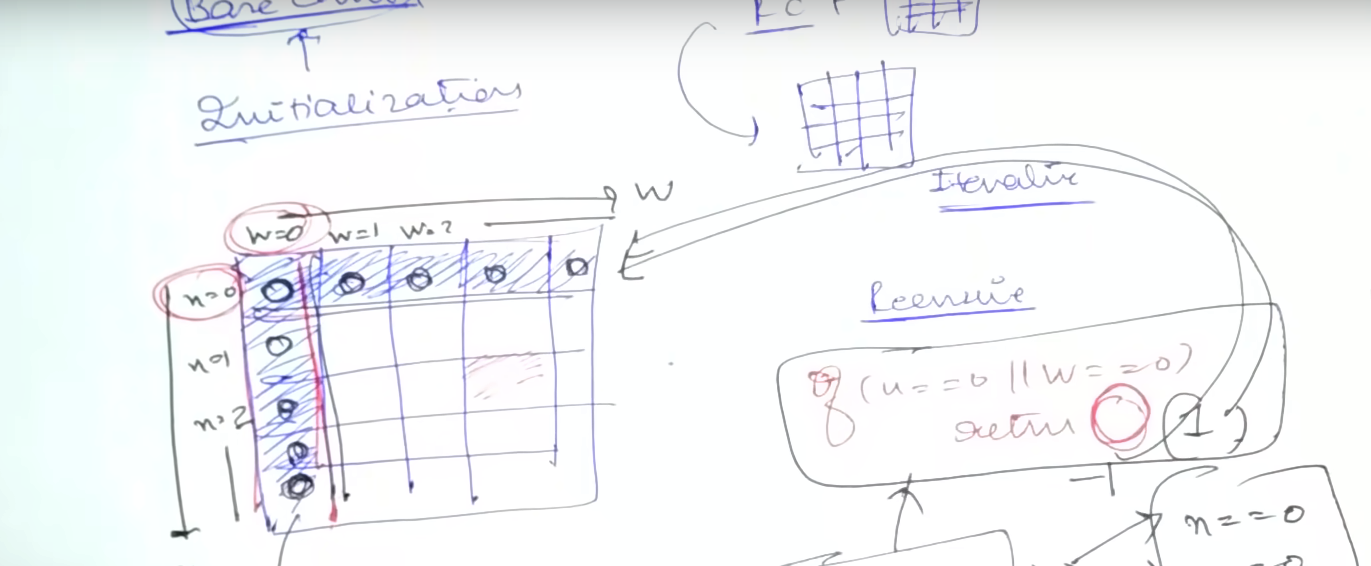 Base
Initialization
Iterative
W
W=0 W=1 W=2
n=0 0 0 0 0 0
n=1 0
n=2 0
0
0
Recursive
if (n==0 || W==0)
return 0 (1)
-1
n==0